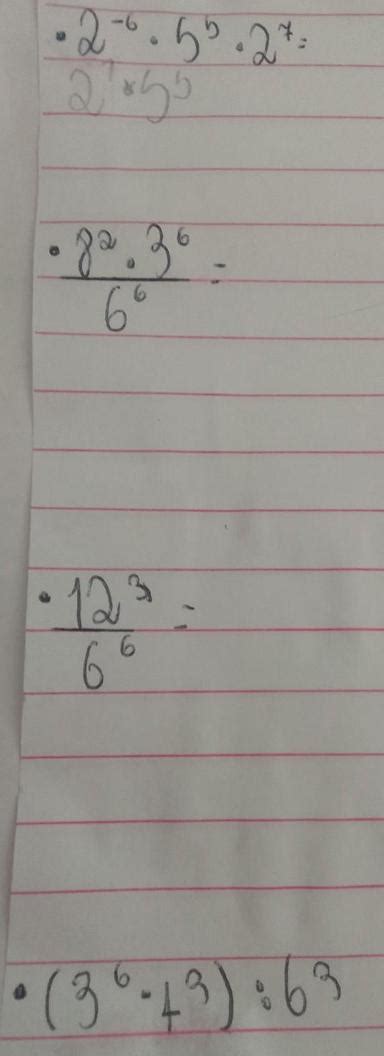 • 2⁻⁶ · 5⁵ · 2⁷ =
2¹ · 5⁵
• 8² · 3⁶
6⁶ =
• 12³
6⁶ =
• (3⁶ · 4³) : 6³